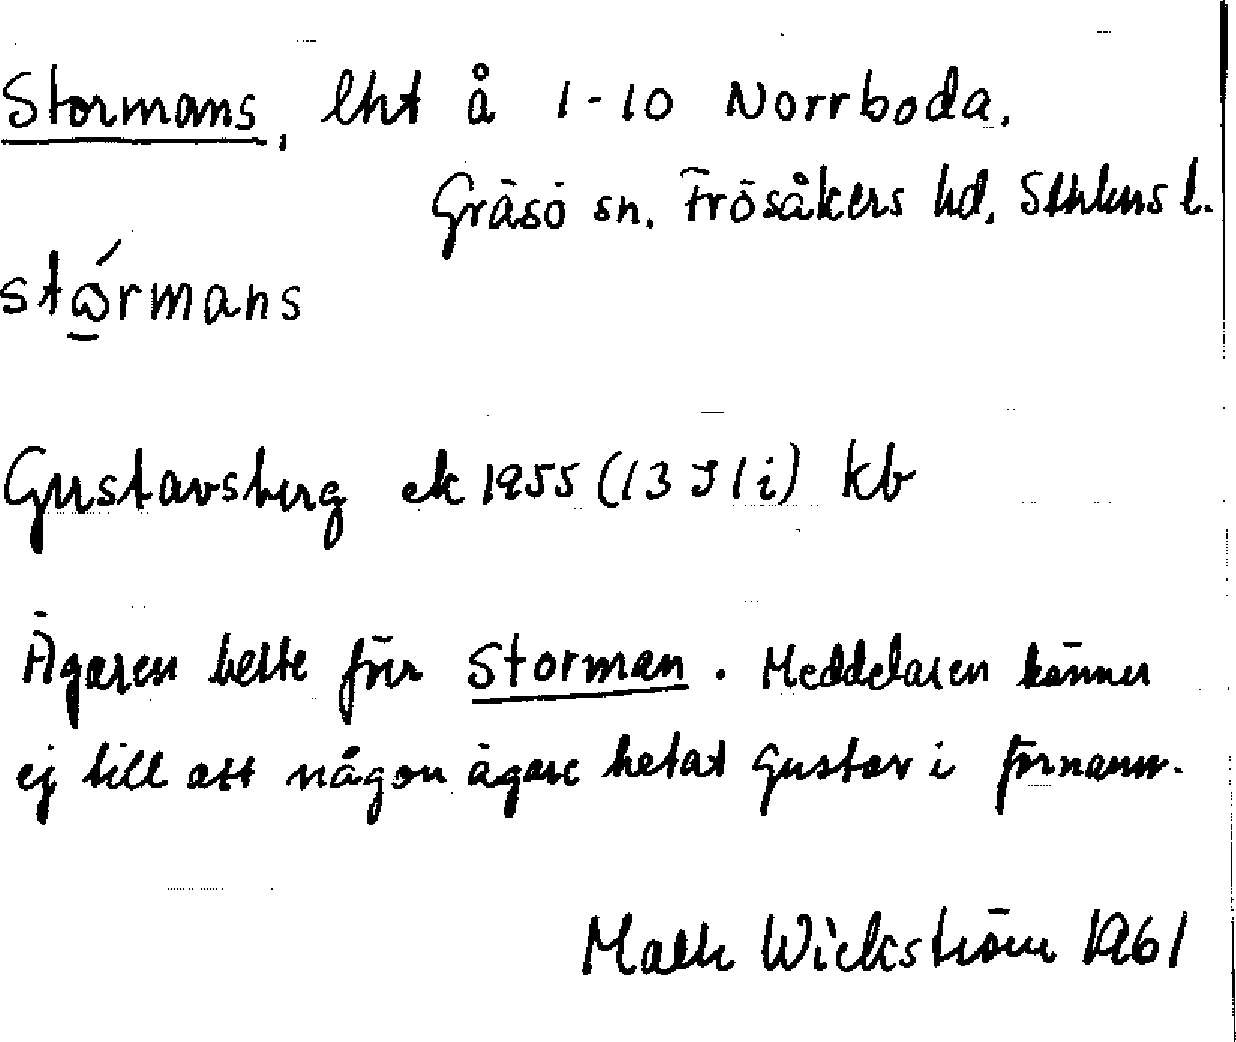 Stormans, lht å 1-10 Norrboda.
Gräsö sn. Frösåkers hd, Sthlms l.
stώ̱rmans
Gustavsberg ek 1955 (13 I 1 i) kb
Ägaren hette förr Storman. Meddelaren känner
ej till att någon ägare hetat Gustav i förnamn.
Wickström 1961